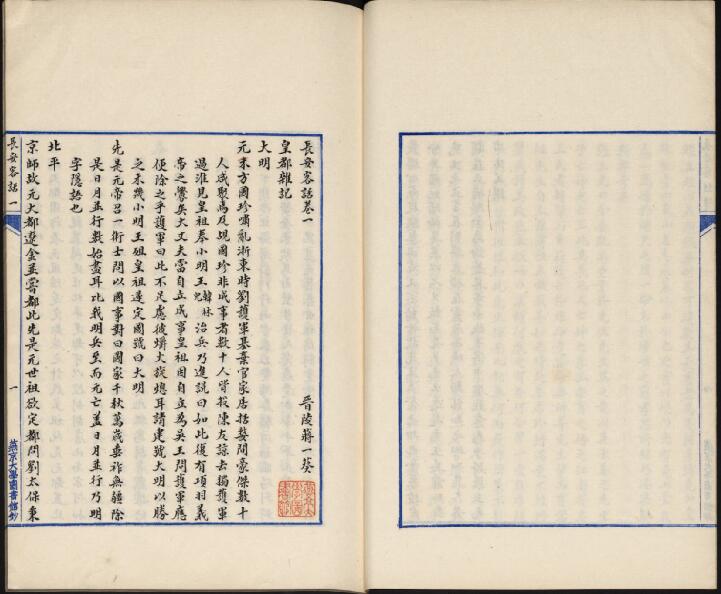 長安客話卷一
晉陵蔣一葵
皇都雜記
大明
元末方國珍嘯亂浙東時劉護軍基棄官家居括婺間豪傑數十
人咸聚焉及規國珍非成事者數十人皆投陳友諒去獨護軍
過淮見皇祖奉小明王韓林兒治兵乃進說曰如此復有項羽義
帝之舋矣大丈夫當自立成事皇祖因自立為吳王問護軍應
便除之乎護軍曰此不足慮後爝火旋熄耳請建號大明以勝
之未幾小明王殂皇祖遂定國號曰大明
先是元帝召一術士問以國事對曰國家千秋萬歲基祚無疆除
是日月並行數始盡耳比我明兵至而元亡蓋日月並行乃明
字隱語也
北平
京師故元大都遼金並嘗都此先是元世祖欲定都問劉太保秉
長安客話一
一
燕京大學圖書館鈔